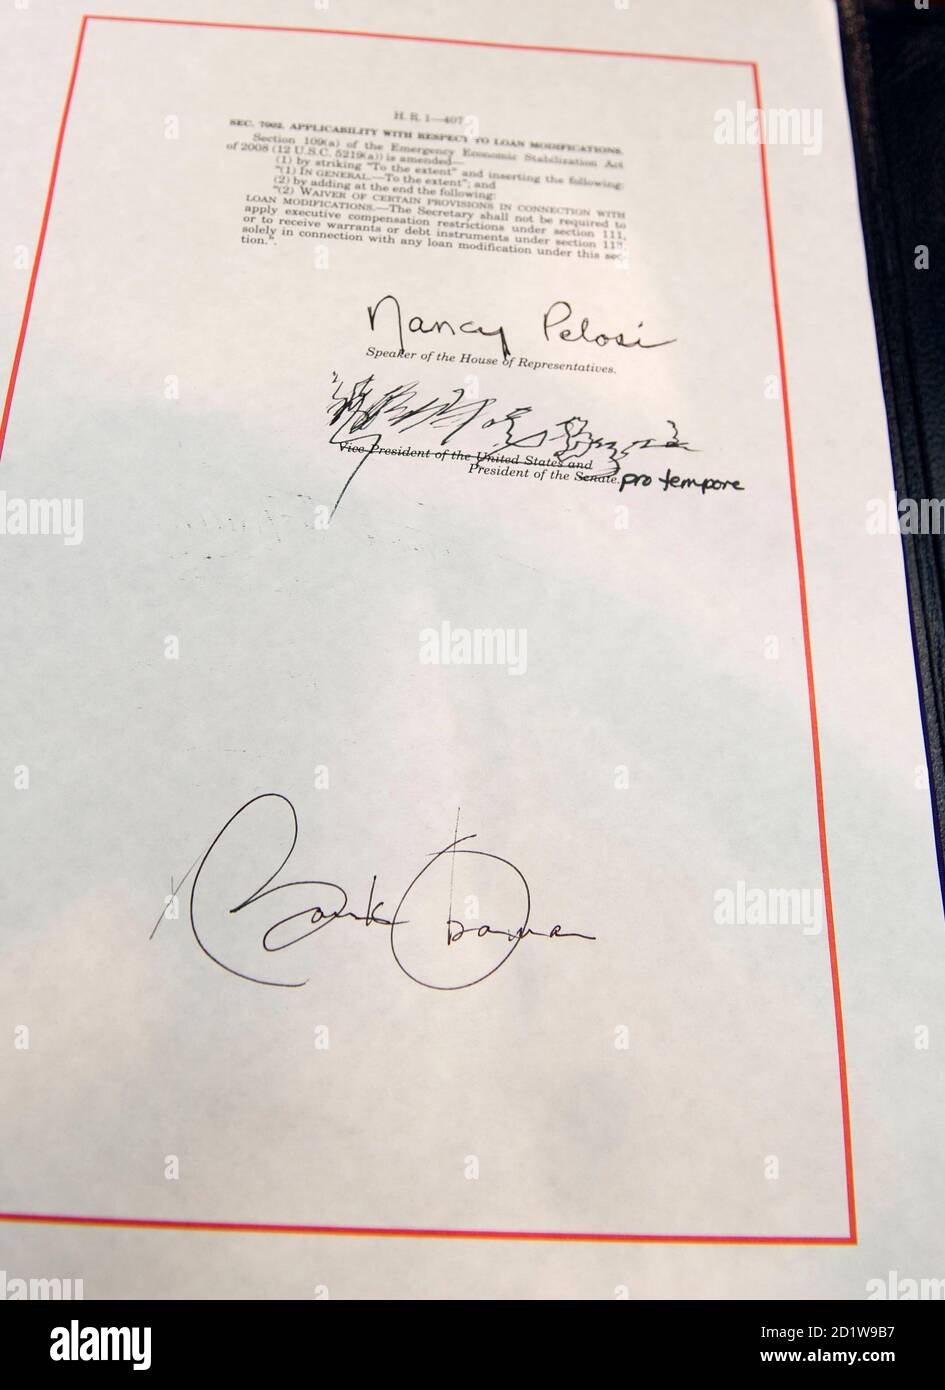 H. R. 1—407
SEC. 7002. APPLICABILITY WITH RESPECT TO LOAN MODIFICATIONS.
Section 109(a) of the Emergency Economic Stabilization Act
of 2008 (12 U.S.C. 5219(a)) is amended—
(1) by striking "To the extent" and inserting the following:
"(1) IN GENERAL.—To the extent"; and
(2) by adding at the end the following:
"(2) WAIVER OF CERTAIN PROVISIONS IN CONNECTION WITH
LOAN MODIFICATIONS.—The Secretary shall not be required to
apply executive compensation restrictions under section 111,
or to receive warrants or debt instruments under section 113,
solely in connection with any loan modification under this sec-
tion.".
Nancy Pelosi
Speaker of the House of Representatives.
Vice President of the United States and
President of the Senate. pro tempore
Barack Obama
alamy
alamy
Image ID: 2D1W9B7
www.alamy.com